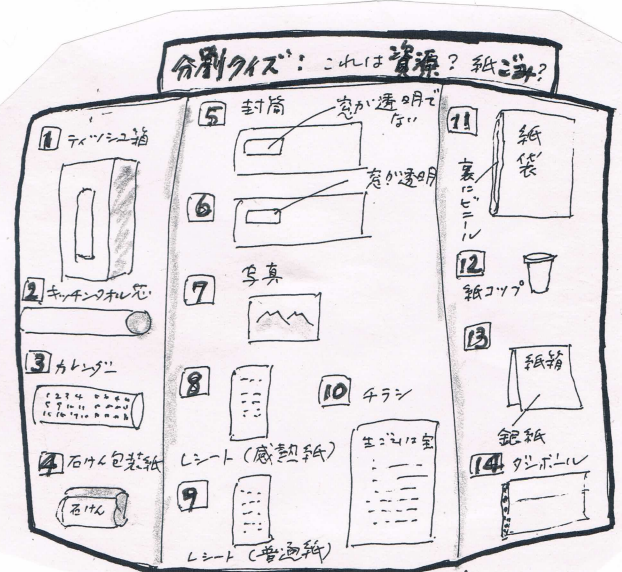 分別クイズ：これは資源？紙ごみ？
1 ティッシュ箱
2 キッチンタオル芯
3 カレンダー
4 石けん包装紙
石けん
5 封筒
窓が透明で
ない
6
窓が透明
7 写真
8
レシート(感熱紙)
9
レシート(普通紙)
10 チラシ
生ごみは宝
11
紙
袋
裏にビニール
12
紙コップ
13
紙箱
銀紙
14 ダンボール